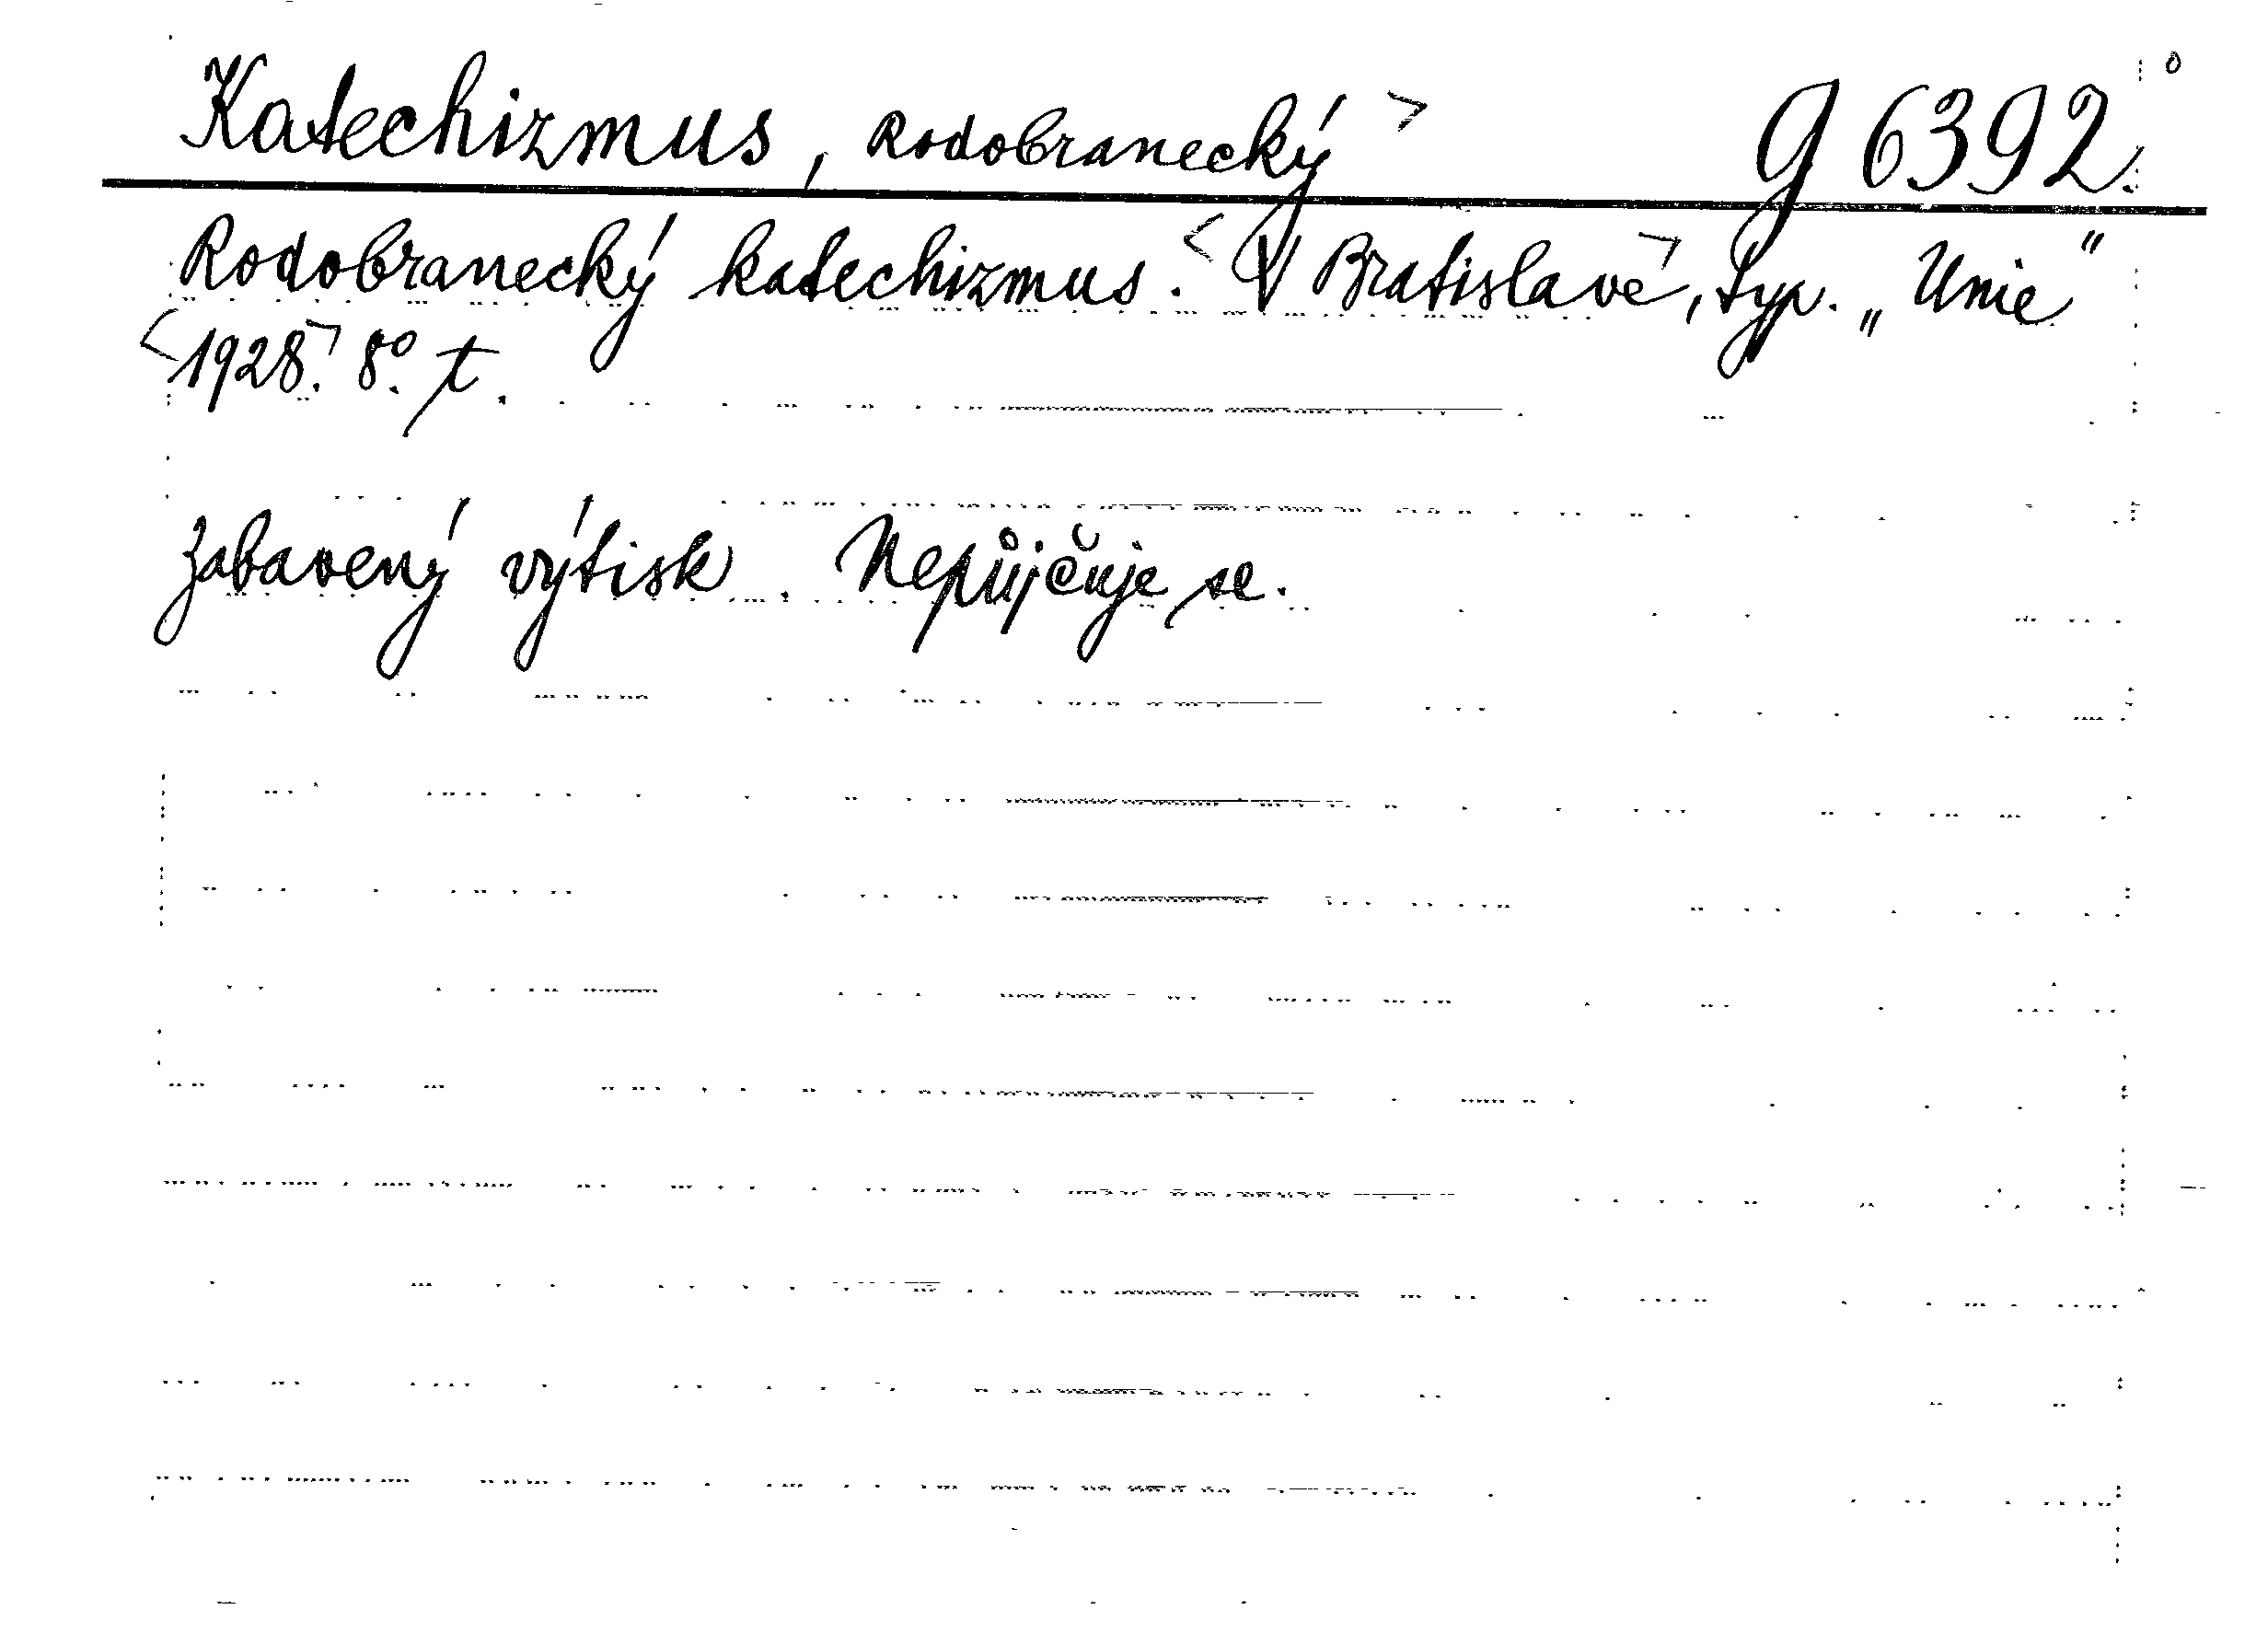 Katechizmus, Rodobranecký > g 6392.
Rodobranecký katechizmus. < V Bratislavě >, typ. „Unie"
< 1928. > 8°. t.
Zabavený výtisk. Nepůjčuje se.